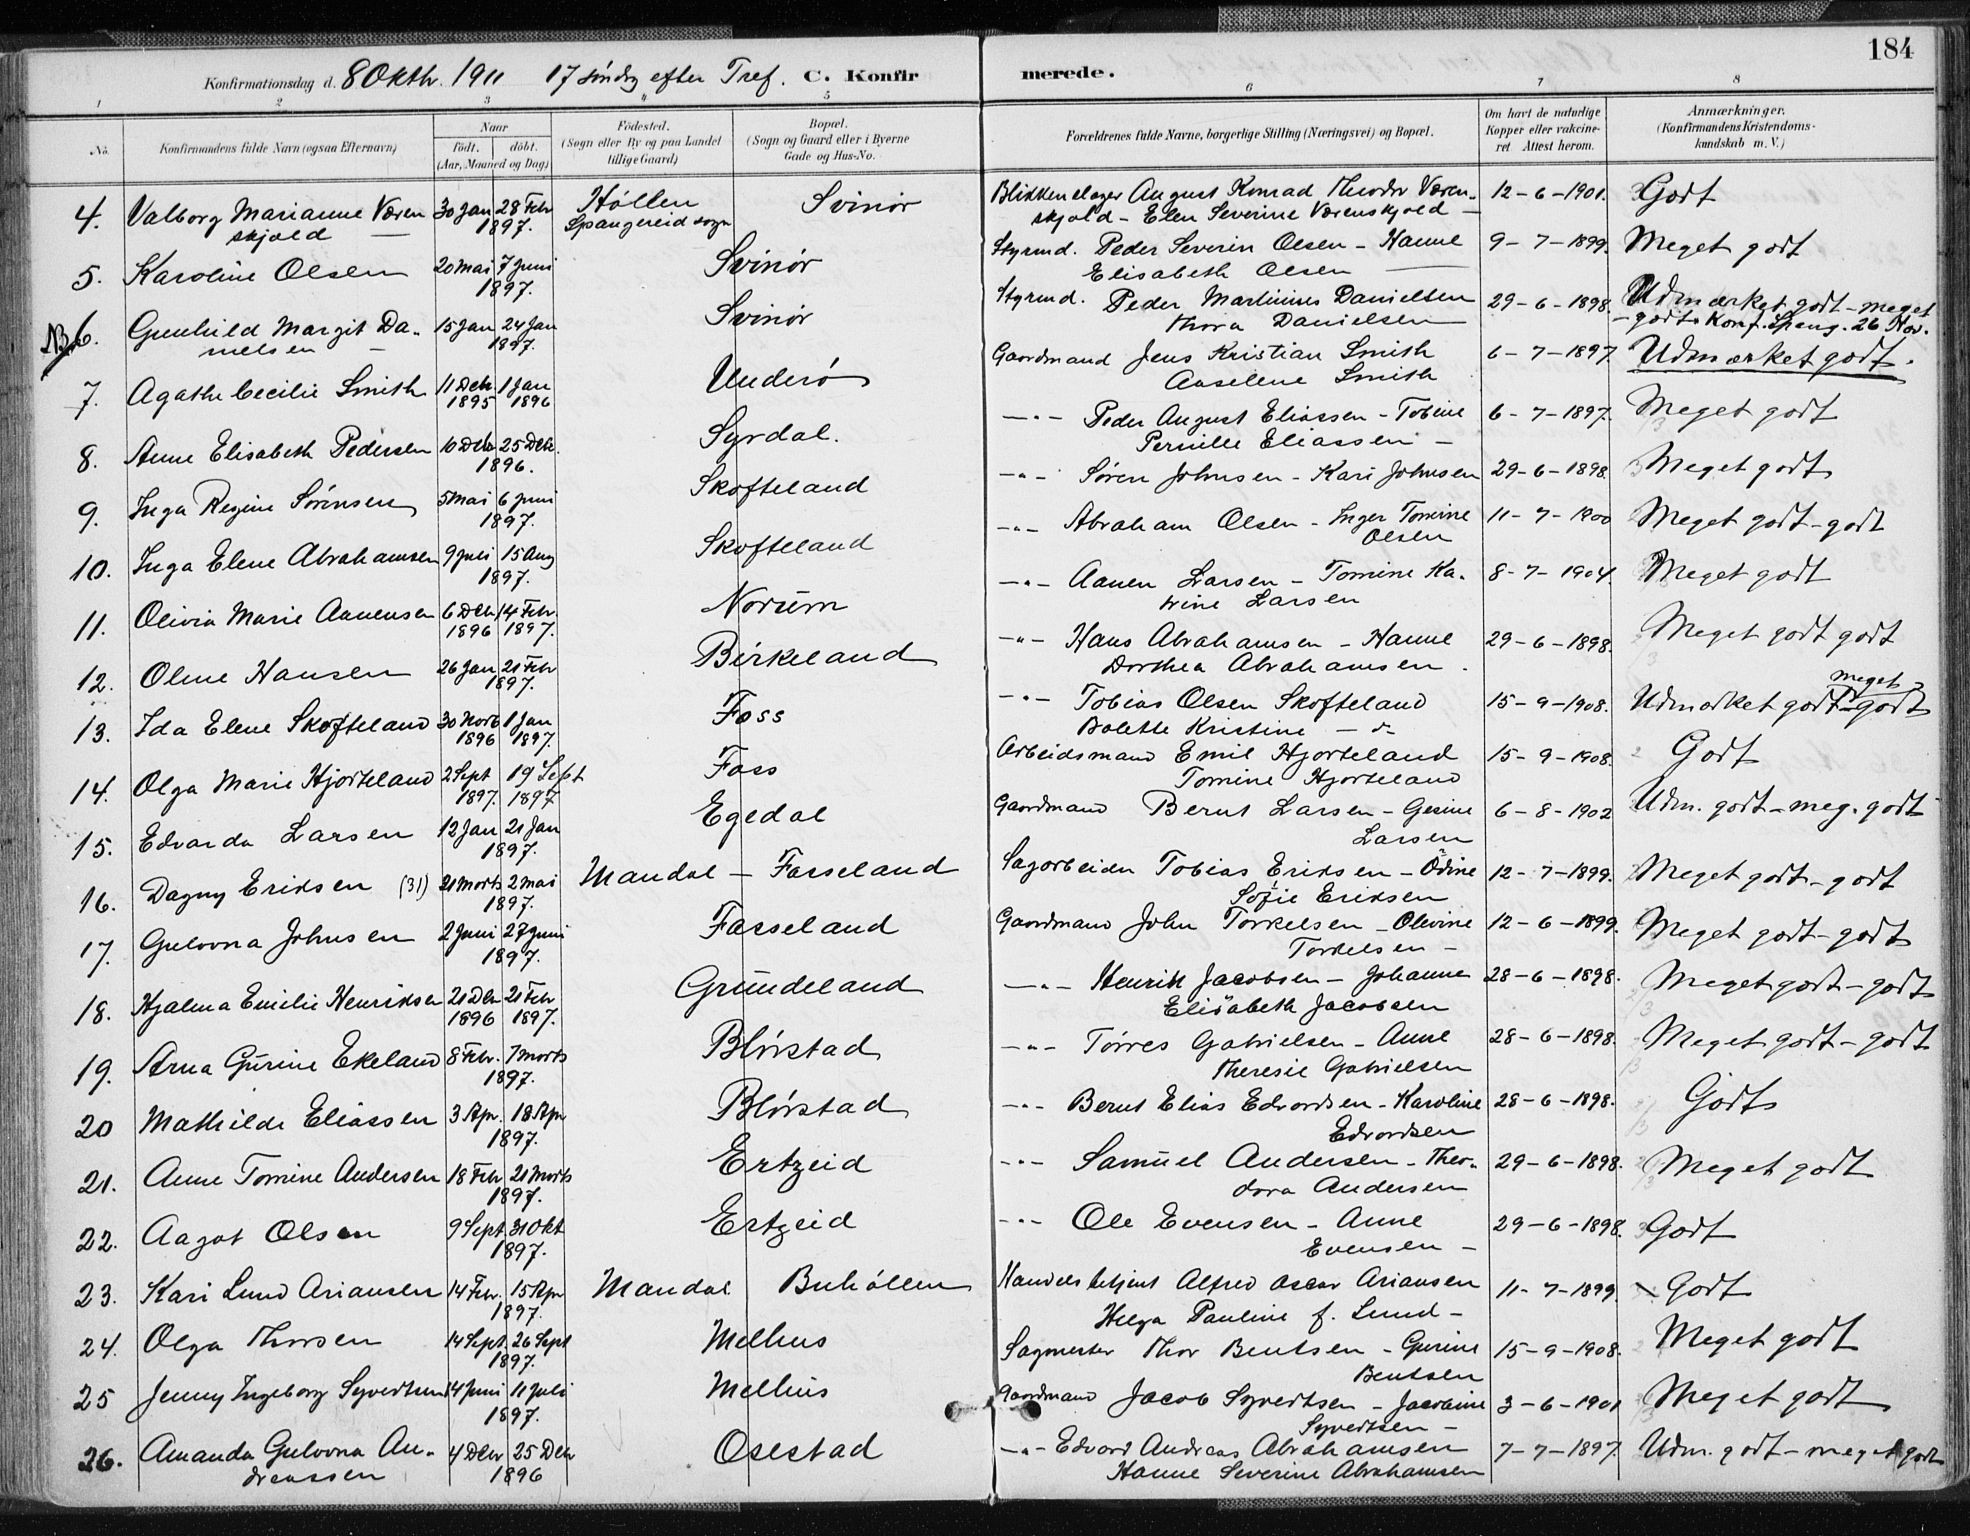 184
Konfirmationsdag d. 8 Oktbr. 1911 17 søndg efter Tref. C. Konfirmerede.
1 2 3 4 5 6 7 8
No. Konfirmandens fulde Navn (ogsaa Efternavn) Naar født. døbt. (Aar, Maaned og Dag) Fødested. (Sogn eller By og paa Landet tillige Gaard) Bopæl. (Sogn og Gaard eller i Byerne Gade og Hus-No. Forældrenes fulde Navne, borgerlige Stilling (Næringsvei) og Bopæl. Om havt de naturlige Kopper eller vakcineret Attest herom. Anmærkninger. (Konfirmandens Kristendomskundskab m. V.)
4. Valborg Marianne Væren 30 Jan 28 Febr Høllen Svinør Blikkenslager August Konrad Theodor Væren- 12-6-1901. Godt
skjold — 1897. Spangereid sogn skjold - Elen Severine Værenskjold —
5. Karoline Olsen 20 Mai 7 Juni Svinør Styrmd. Peder Severin Olsen - Hanne 9-7-1899. Meget godt
1897. Elisabeth Olsen —
NB. 6. Gunhild Margit Da- 15 Jan 24 Jan Svinør Styrmd. Peder Martinius Danielsen 29-6-1898. Udmærket godt - meget
nielsen — 1897. Thora Danielsen — godt. Konf. Spang. 26 Nov.
7. Agathe Cecilie Smith 11 Debr. 1 Jan Underø Gaardmand Jens Kristian Smith 6-7-1897. Udmærket godt.
1895 1896 Anselene Smith
8. Anne Elisabeth Pedersen 10 Debr 25 Debr. Syrdal. —"— Peder August Eliassen - Tobine 6-7-1897. Meget godt
1896. Pernille Eliassen —
9. Inga Regine Sørensen 5 Mai 6 Juni Skofteland —"— Søren Johnsen - Kari Johnsen 29-6-1898. Meget godt
1897.
10. Inga Elene Abrahamsen 9 Juli 15 Aug Skofteland —"— Abraham Olsen - Inger Tomine 11-7-1900 Meget godt - godt
1897. Olsen
11. Olivia Marie Aanensen 6 Debr 14 Febr. Norum —"— Aanen Larsen - Tomine Ka- 8-7-1904. Meget godt
1896 1897. trine Larsen
12. Oline Hansen 26 Jan 21 Febr Birkeland —"— Hans Abrahamsen - Hanne 29-6-1898. Meget godt godt
1897. Dorthea Abrahamsen.
13. Ida Elene Skofteland 30 Novb 1 Jan Foss —"— Tobias Olsen Skofteland 15-9-1908. Udmærket godt - meget godt
1896 1897. Bolette Kristine —"—
14. Olga Marie Hjorteland 2 Sept 19 Sept Foss Arbeidsmand Emil Hjorteland 15-9-1908. Godt
1897. 1897 Tomine Hjorteland
15. Edvarda Larsen 12 Jan 21 Jan Egedal Gaardmand Bernt Larsen - Gesine 6-8-1902 Udm. godt - meg. godt
1897. Larsen
16. Dagny Eriksen (31) 21 Marts 2 Mai Mandal — Fasseland Sagarbeider Tobias Eriksen - Odine 12-7-1899. Meget godt - godt
1897. Sofie Eriksen
17. Gulovna Johnsen 2 Juni 27 Juni Fasseland Gaardmand John Torkelsen - Olevine 12-6-1899. Meget godt - godt
1897. Torkelsen —
18. Hjalma Emilie Henriksen 21 Debr 21 Febr Grundeland —"— Henrik Jacobsen - Johanne 28-6-1898. Meget godt - godt
1896 1897. Elisabeth Jacobsen
19. Arna Gurine Ekeland 8 Febr. 7 Marts Blørstad —"— Tørres Gabrielsen - Anne 28-6-1898. Meget godt - godt
1897. Theresie Gabrielsen
20 Mathilde Eliassen 3 Apr. 18 Apr Blørstad —"— Bernt Elias Edvardsen - Karoline 28-6-1898. Godt
1897. Edvardsen
21. Anne Tomine Andersen 18 Febr 21 Marts Ertzeid —"— Samuel Andersen - Theo- 29-6-1898. Meget godt
1897. dora Andersen
22. Aagot Olsen 9 Sept. 31 Okt Ertzeid —"— Ole Evensen - Anne 29-6-1898. Godt
1897. Evensen —
23. Kari Lund Ariansen 14 Febr. 15 Apr Mandal Buhøllen Handelsbetjent Alfred Oscar Ariansen 11-7-1899. Godt
1897. Helga Pauline f. Lund —
24. Olga Thorsen 14 Sept. 26 Sept Melhus Sagmester Thor Bentsen - Gurine 15-9-1908. Meget godt
1897. Bentsen
25 Jenny Ingeborg Syvertsen 14 Juni 11 Juli Melhus Gaardmand Jacob Syvertsen - Jacobine 3-6-1901 Meget godt
1897. Syvertsen —
26. Amanda Gulovna An- 4 Debr 25 Debr Osestad —"— Edvard Andreas Abrahamsen 7-7-1897. Udm. godt - meget godt
dreassen 1896 Hanne Severine Abrahamsen